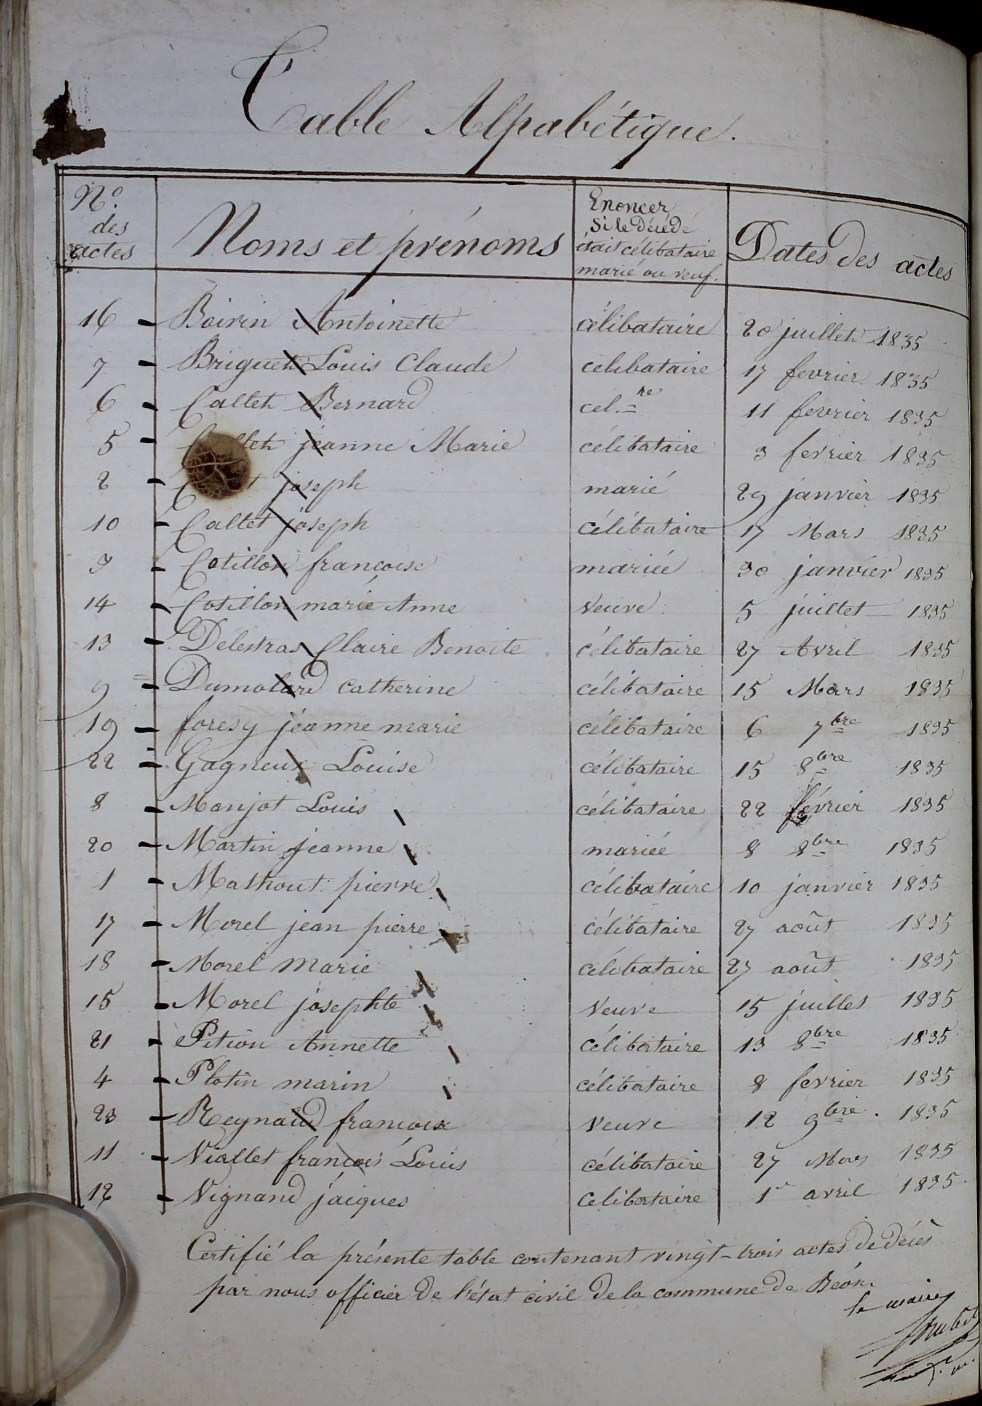 Table Alphabétique.
Nº des actes Noms et prénoms Enoncer si le décédé était célibataire marié ou veuf. Dates des actes
16 - Boirin Antoinette célibataire 20 juillet 1835
7 - Briguet Louis Claude celibataire 17 fevrier 1835
6 - Callet Bernard cel.re 11 fevrier 1835
5 - jéanne Marie célibataire 3 fevrier 1835
2 - joseph marié 29 janvier 1835
10 - Callet joseph célibataire 17 Mars 1835
3 - Cotillon francoise mariée 30 janvier 1835
14 - Cotillon marie Anne veuve 5 juillet 1835
13 - Delestras Claire Benoite célibataire 27 Avril 1835
9 - Dumolard catherine célibataire 15 Mars 1835
19 - foresy jéanne marie célibataire 6 7bre 1835
22 - Gagneux Louise célibataire 15 8bre 1835
8 - Manjot Louis célibataire 22 février 1835
20 - Martin jeanne mariée 8 8bre 1835
1 - Mathout pierre célibataire 10 janvier 1835
17 - Morel jean pierre célibataire 27 août 1835
18 - Morel Marie célibataire 27 août 1835
15 - Morel josephte veuve 15 juillet 1835
21 - Pition Annette célibataire 13 8bre 1835
4 - Platin marin célibataire 2 fevrier 1835
23 - Reynaud francoix veuve 12 9bre. 1835
11 - Viallet francois Louis célibataire 27 Mars 1835
12 - Vignand jáiques celibataire 1er avril 1835.
Certifié la présente table contenant vingt-trois actes de décès
par nous officier de l'état civil de la commune de Béon.
le maire